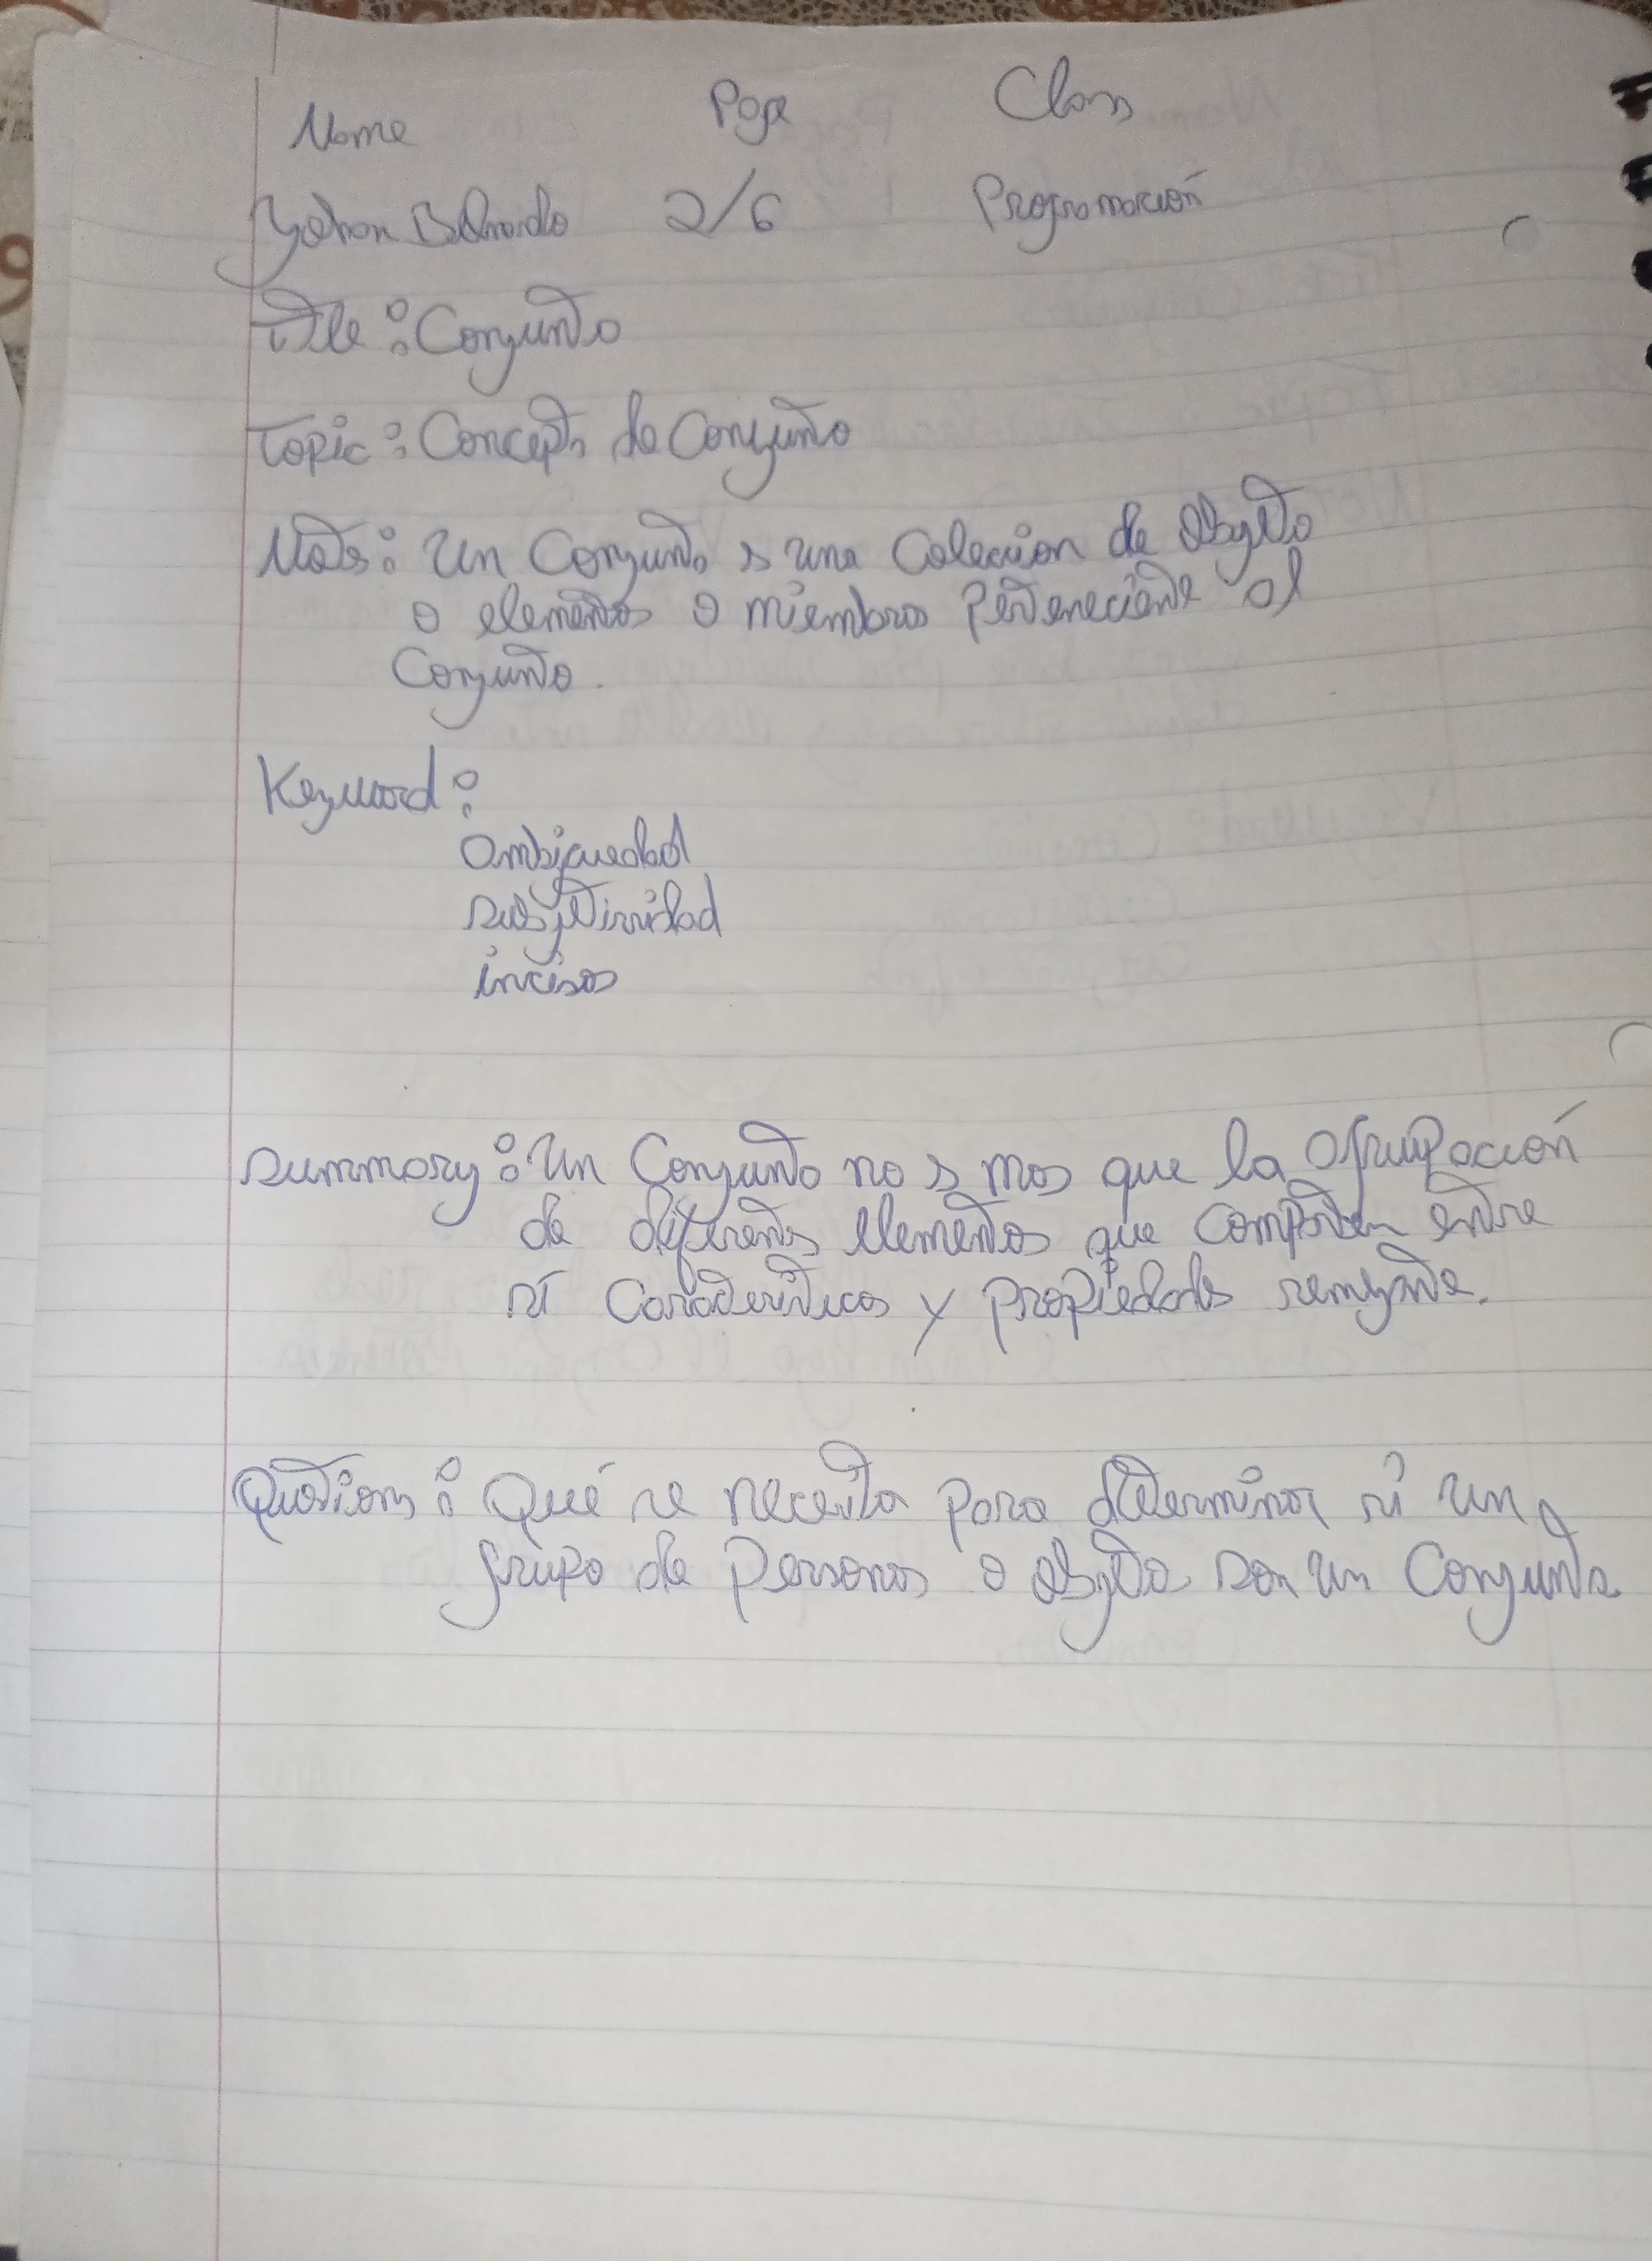 Name Page Class
Yohan 2/6 Programación
Title: Conjunto
Topic: Concepto de Conjunto
Notes: Un Conjunto es una Coleccion de Objeto
o elementos o miembros Perteneciente al
Conjunto.
Keyword:
Ambiguedad
subjetividad
incisos
Summary: Un Conjunto no es mas que la agrupación
de diferentes elementos que comparten entre
sí Características y propiedades semejante.
Questions: Qué se necesita para determinar si un
grupo de Personas o objeto son un Conjunto